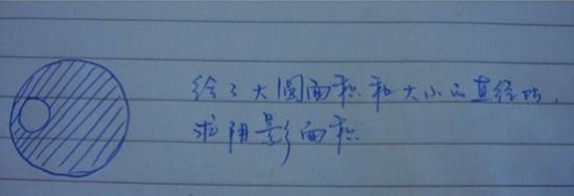 给了大圆面积和大小の直径比,
求阴影面积